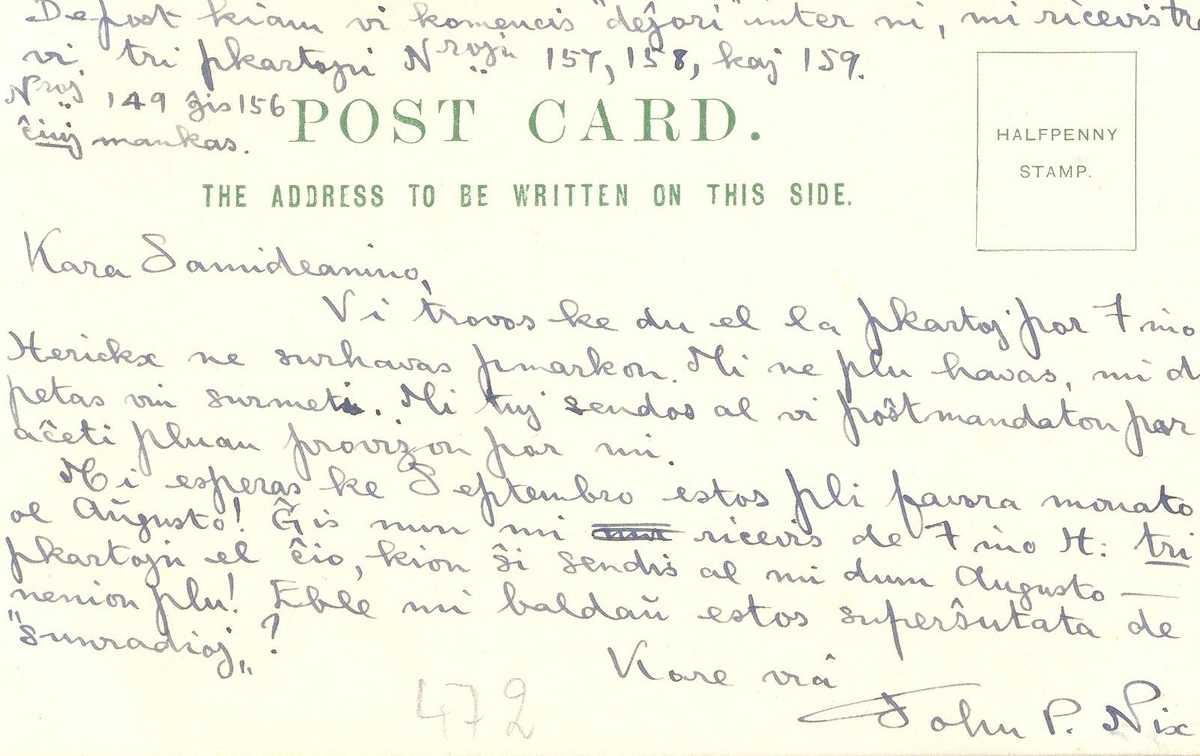 De post kiam vi komencis "deĵori" inter ni, mi ricevis
vi, tri pkartojn Nrojn 157, 158, kaj 159.
Nroj 149 ĝis 156
ĉiuj mankas.
POST CARD.
HALFPENNY
STAMP.
THE ADDRESS TO BE WRITTEN ON THIS SIDE.
Kara Samideanino,
Vi trovos ke du el la pkartoj por Fino
Herickx ne surhavas pmarkon. Mi ne plu havas, mi
petas vin surmeti. Mi tuj sendos al vi poŝtmandaton por
aĉeti pluan provizon por mi.
Mi esperas ke Septembro estos pli favora monato
ol Aŭgusto! Ĝis nun mi ricevis de Fino H: tri
pkartojn el ĉio, kion ŝi sendis al mi dum Augusto —
nenion plu! Eble mi baldaŭ estos superŝutata de
"sunradioj„?
Kore via
John P. Nix
472